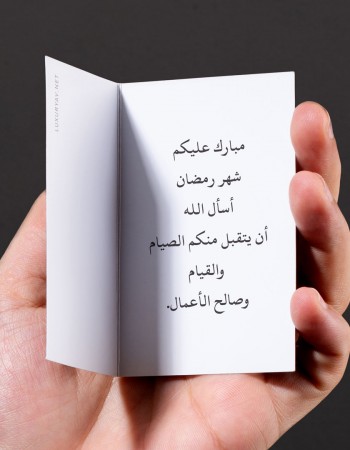 مبارك عليكم
شهر رمضان
أسأل الله
أن يتقبل منكم الصيام
والقيام
وصالح الأعمال.